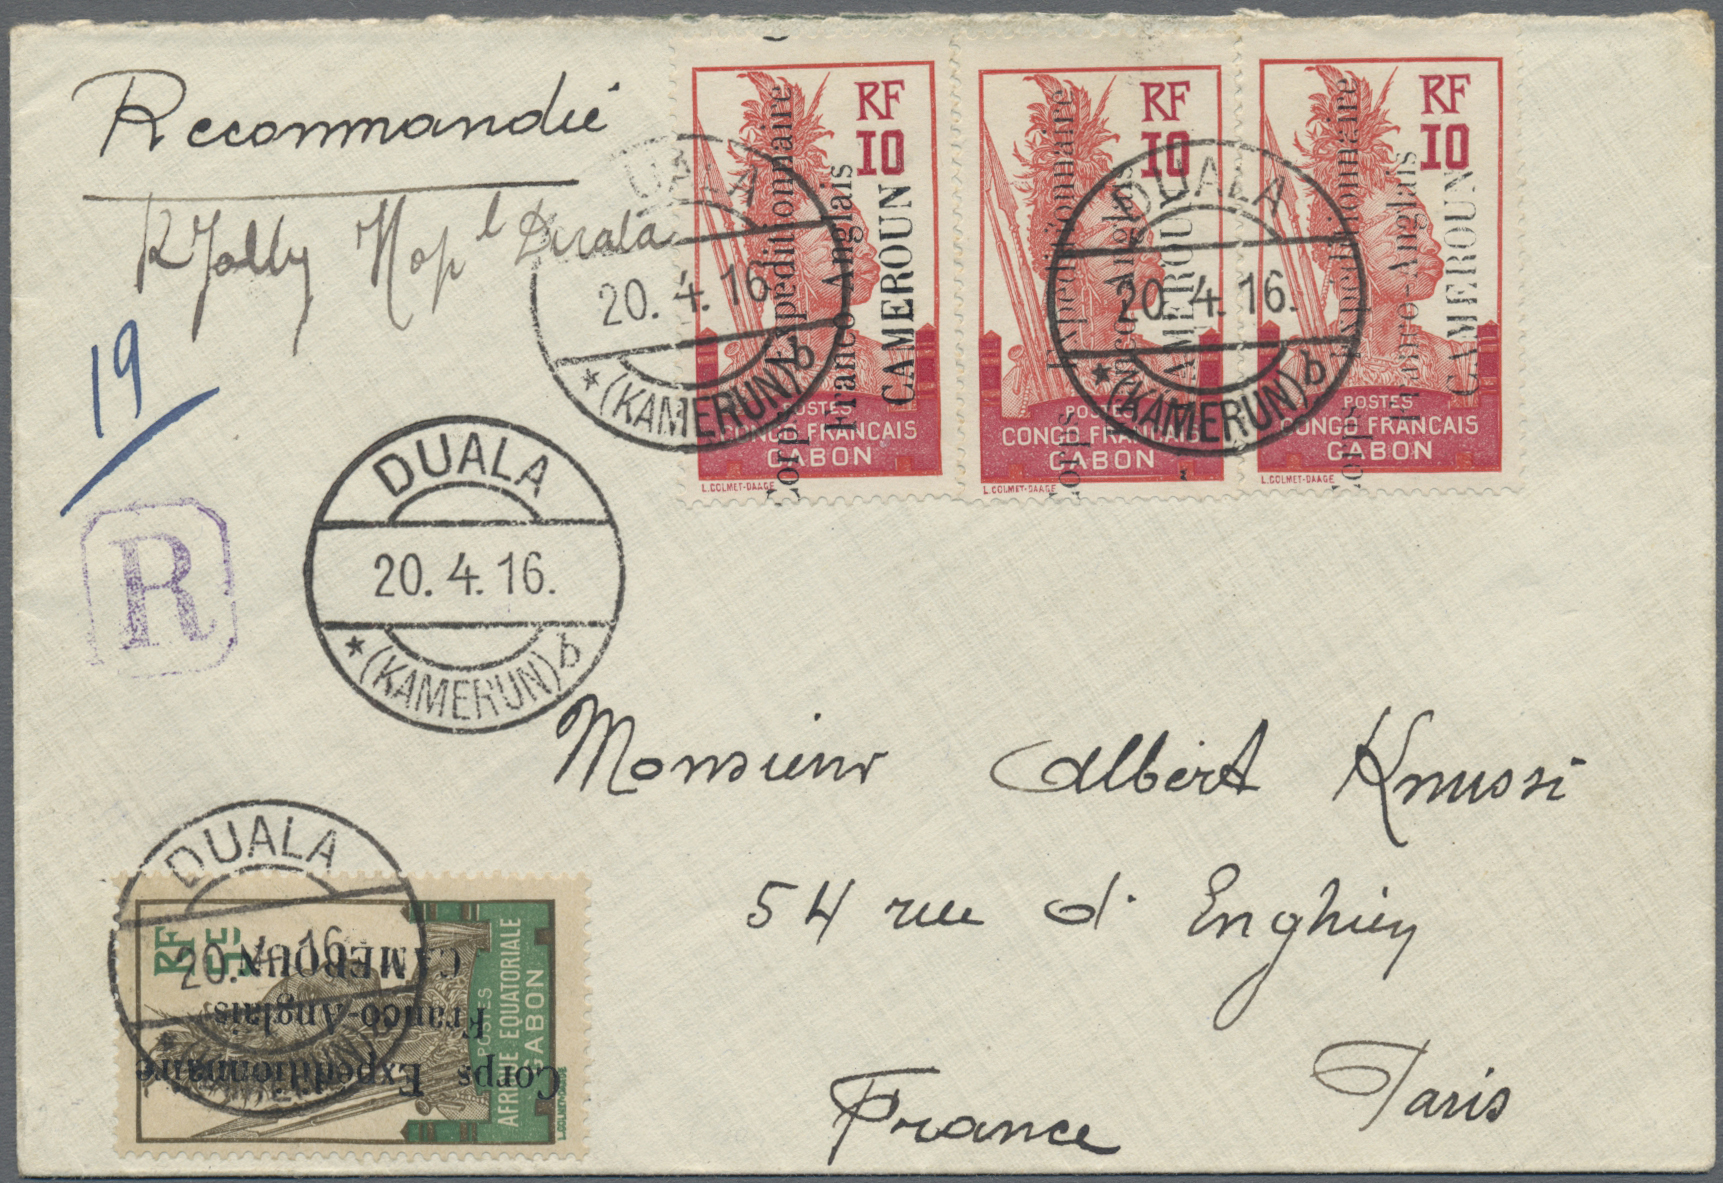 Recommandée
RJolly Hop l Duala
19
R
RF
10
Corps Expeditionnaire
Franco-Anglais
CAMEROUN
POSTES
CONGO FRANCAIS
GABON
L.COLMET-DAAGE
RF
10
Corps Expeditionnaire
Franco-Anglais
CAMEROUN
POSTES
CONGO FRANCAIS
GABON
L.COLMET-DAAGE
RF
10
Corps Expeditionnaire
Franco-Anglais
CAMEROUN
POSTES
CONGO FRANCAIS
GABON
L.COLMET-DAAGE
DUALA
20.4.16.
*(KAMERUN) b
DUALA
20.4.16.
*(KAMERUN) b
DUALA
20.4.16.
*(KAMERUN) b
Monsieur Albert Knussi
54 rue d'Enghien
Paris
France
DUALA
20.4.16.
RF
Corps Expeditionnaire
Franco-Anglais
CAMEROUN
POSTES
AFRIQUE EQUATORIALE
GABON
L.COLMET-DAAGE